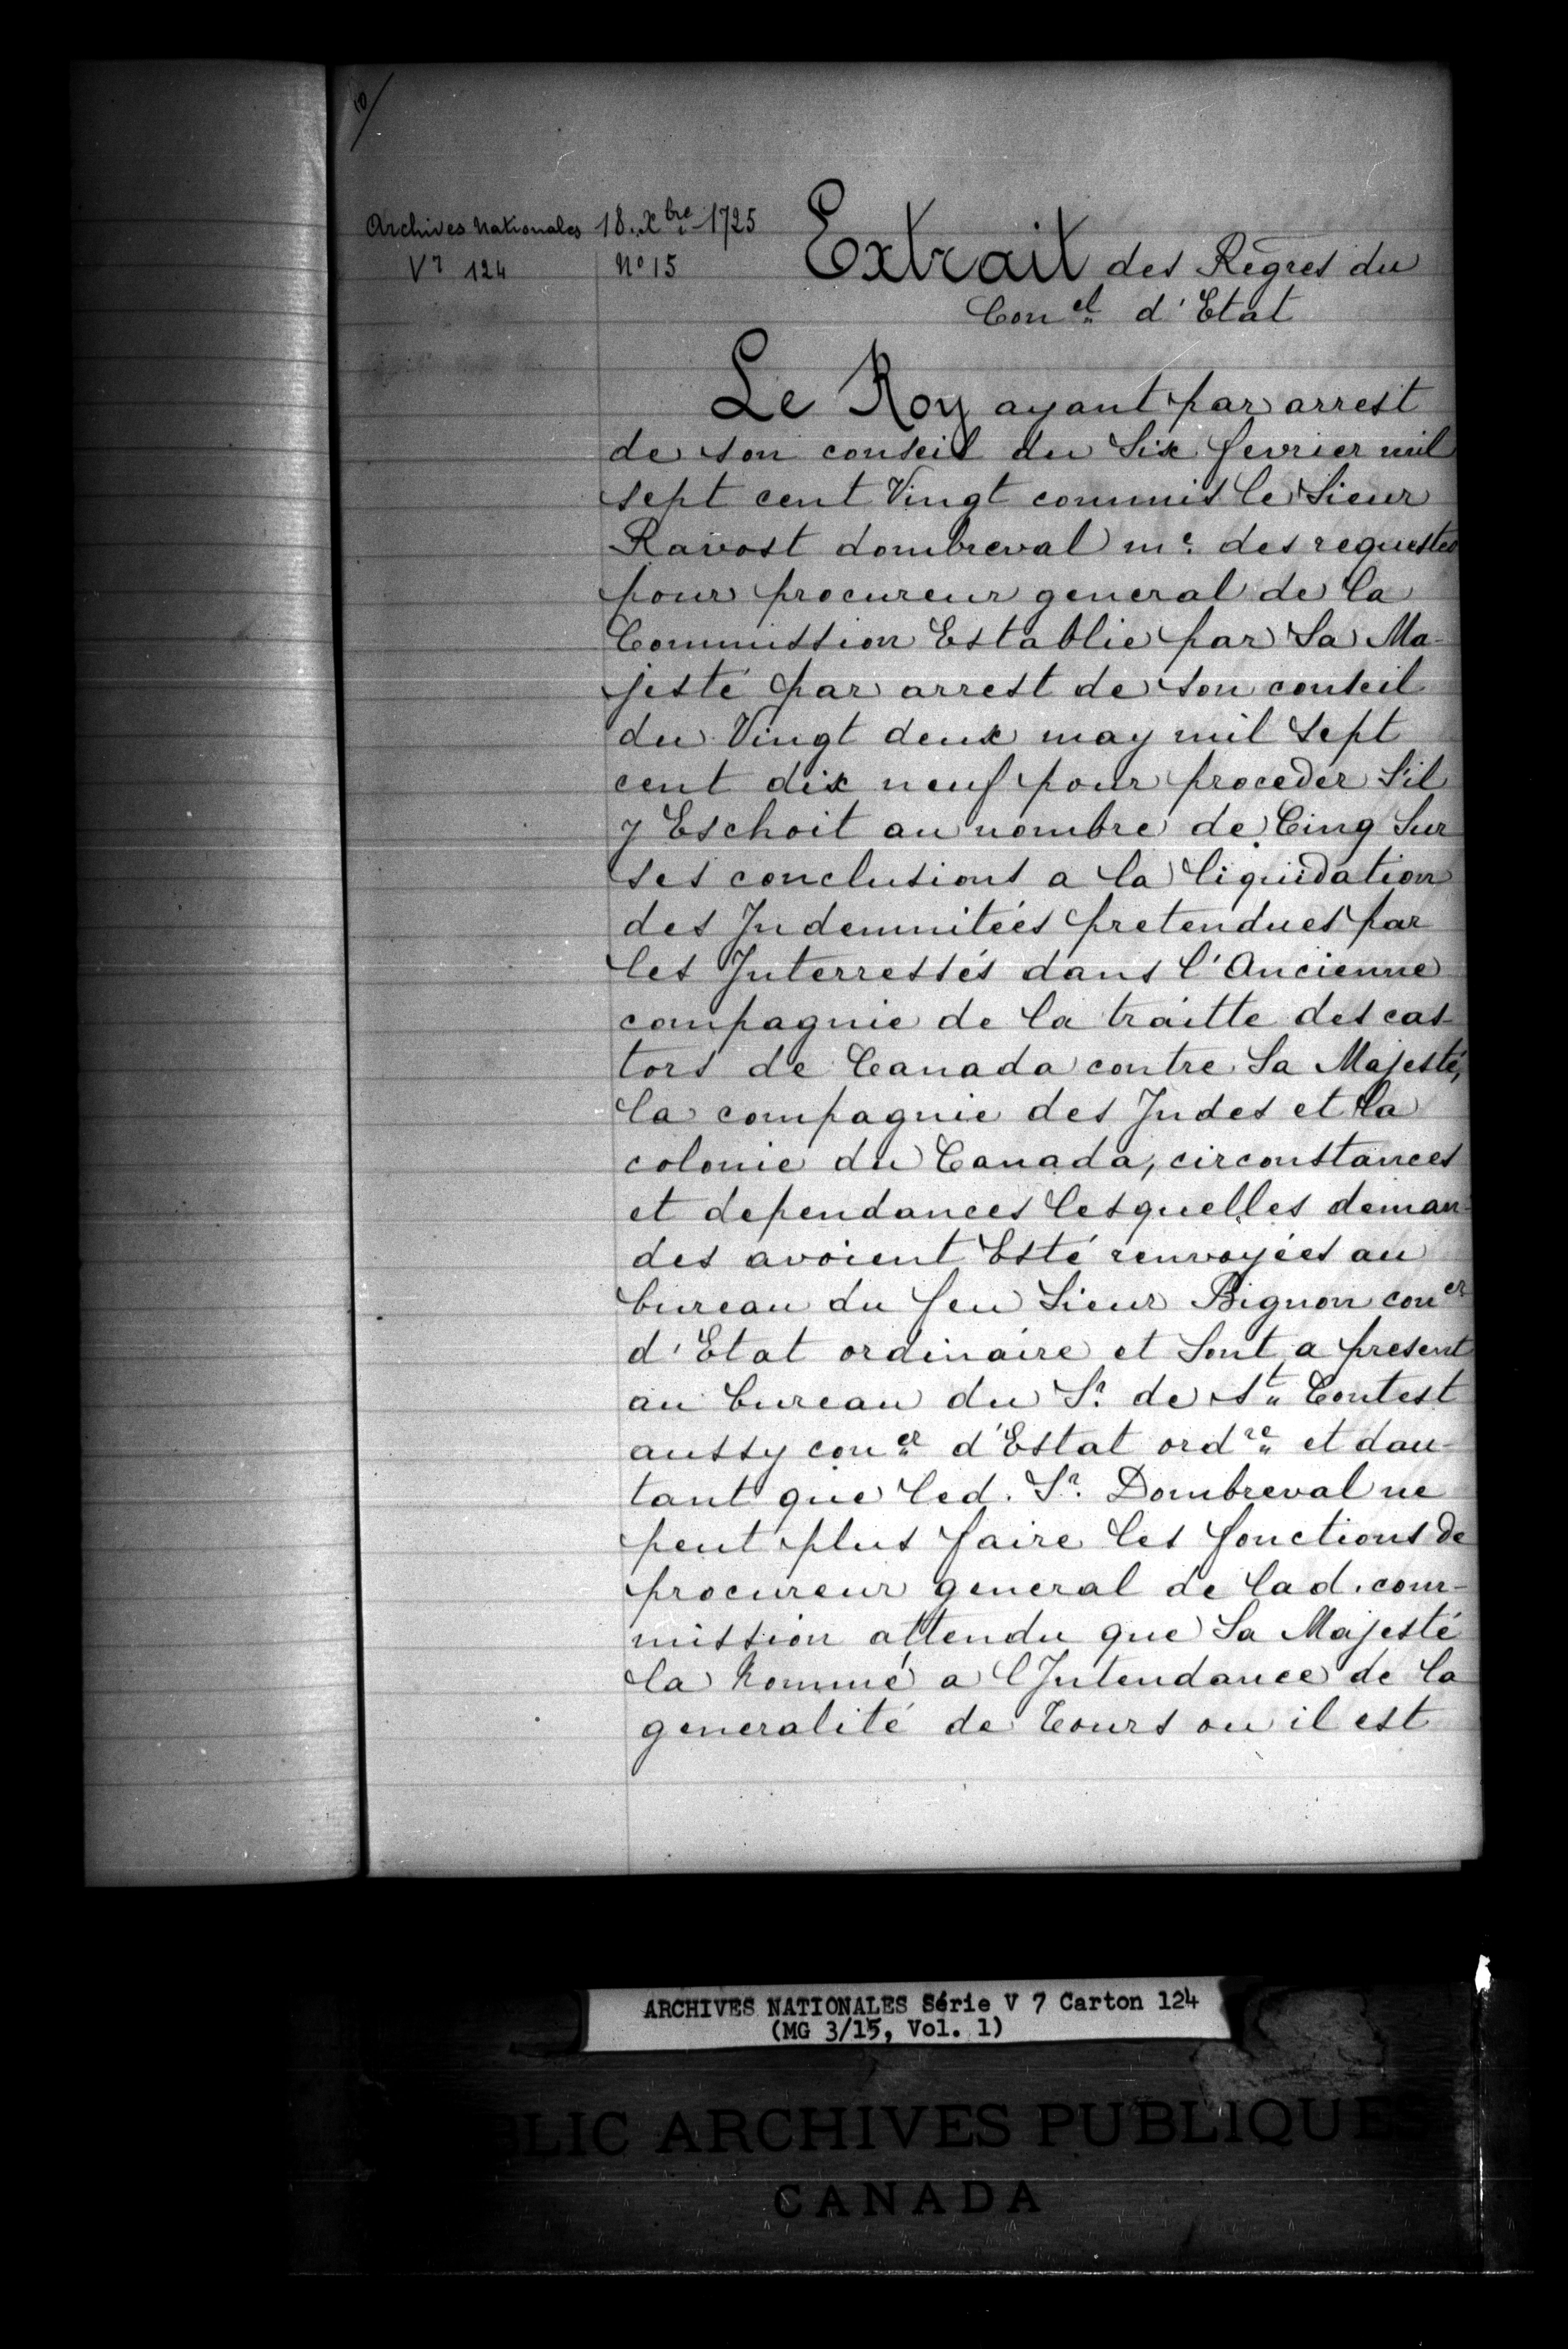 10/
Archives Nationales
V7 124
18. Xbre 1725
No 15
Extrait des Regres du
Conel d'Etat
Le Roy ayant par arrest
de son conseil du Six fevrier mil
sept cent Vingt commis le Sieur
Ravost dombreval me. des requestes
pour procureur general de la
Commission Establie par Sa Ma-
jesté par arrest de son conseil
du Vingt deux may mil sept
cent dix neuf pour proceder S'il
y Eschoit au nombre de Cinq Sur
ses conclusions a la liquidation
des Indemnitéés pretendues par
les Interressés dans l'Ancienne
compagnie de la traitte des cas-
tors de Canada contre Sa Majesté,
la compagnie des Indes et la
colonie du Canada, circonstances
et dependances lesquelles deman-
des avoient Esté renvoyées au
bureau du feu Sieur Bignon coner
d'Etat ordinaire et Sont a present
au bureau du Sr. de St Contest
aussy coner d'Estat ordre et dau-
tant que led. Sr. Dombreval ne
peut plus faire les fonctions de
procureur general de lad. com-
mission attendu que Sa Majesté
la Nommé a l'Intendance de la
generalité de Tours ou il est
ARCHIVES NATIONALES Série V 7 Carton 124
(MG 3/15, Vol. 1)
BLIC ARCHIVES PUBLIQUES
CANADA